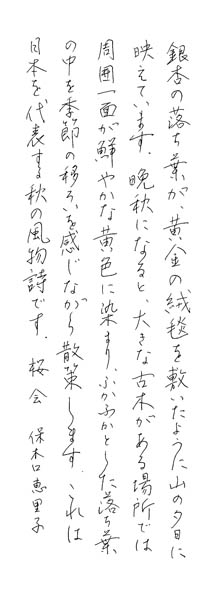 銀杏の落ち葉が、黄金の絨毯を敷いたように山の夕日に
映えています。晩秋になると、大きな古木がある場所では
周囲一面が鮮やかな黄色に染まり、ふかふかとした落ち葉
の中を季節の移ろいを感じながら散策します。これは
日本を代表する秋の風物詩です。 桜会 保木口恵里子